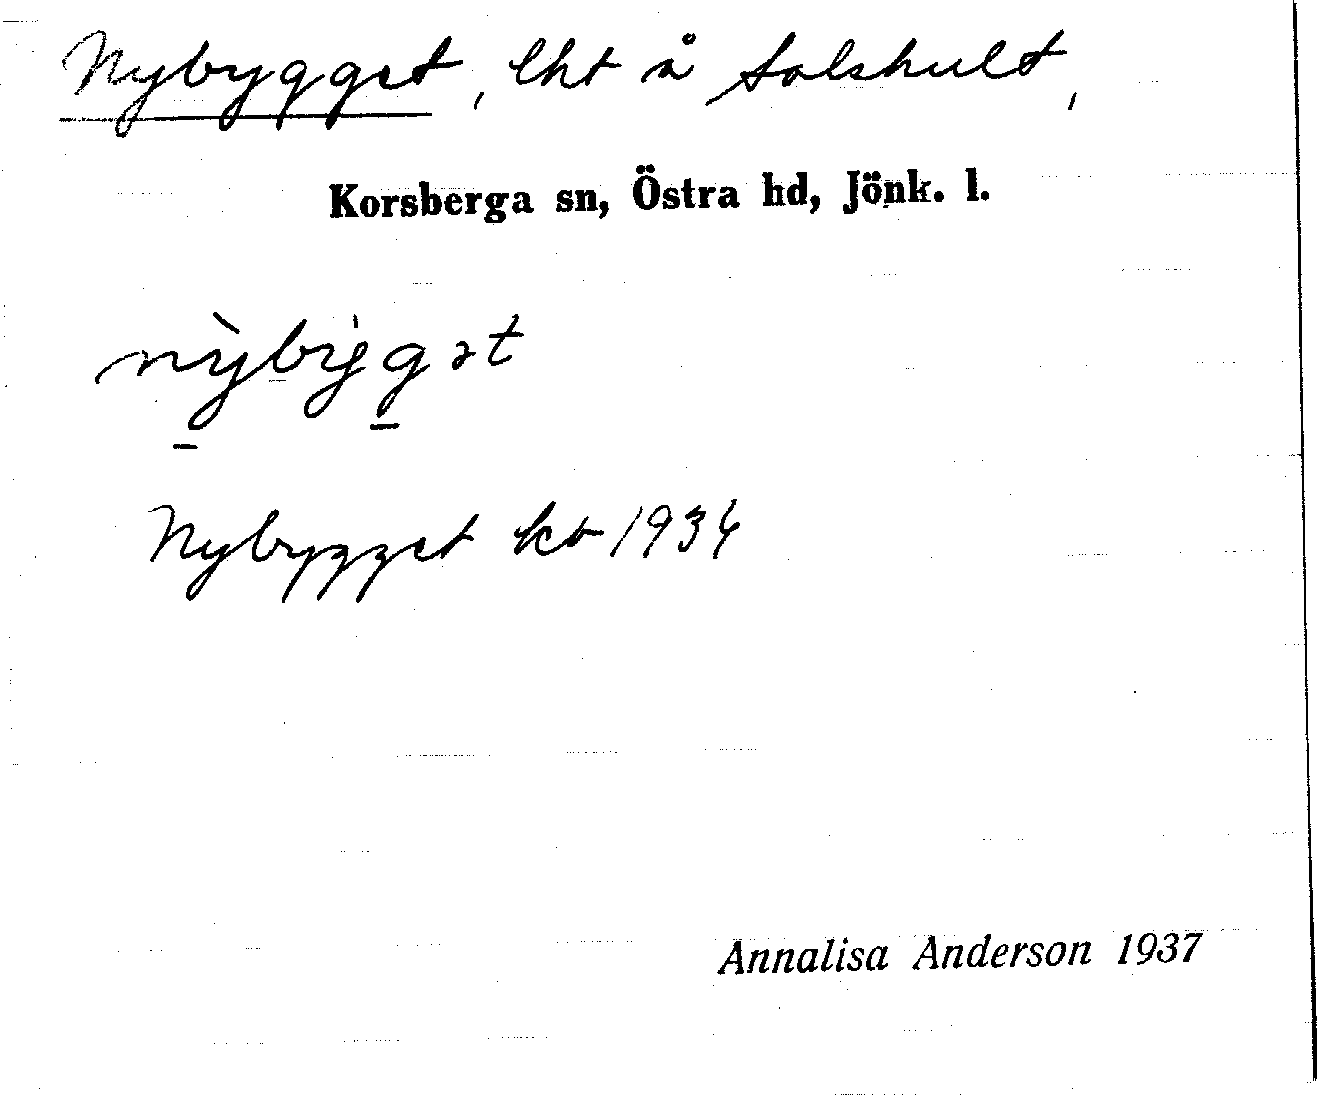 Nybygget, lht å Solshult,
Korsberga sn, Östra hd, Jönk. l.
nỳbýgət
Nybygget kb 1934
Annalisa Anderson 1937